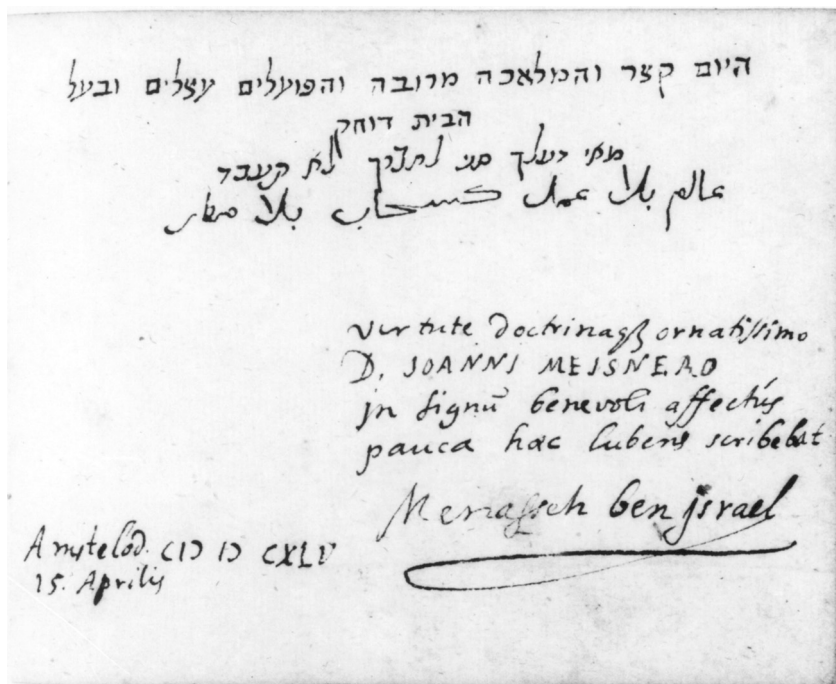 היום קצר והמלאכה מרובה והפועלים עצלים ובעל
הבית דוחק
מאי דעלך סני לחברך לא תעבד
عالم بلا عمل كسحاب بلا مطر
virtute doctrinaqꝫ ornatissimo
D. JOANNI MEJSNERO
jn signū benevoli affectûs
pauca hæc lubens scribebat
Menasseh ben jsrael
Amstelod. CIↃ IↃ CXLV
15. Aprilis